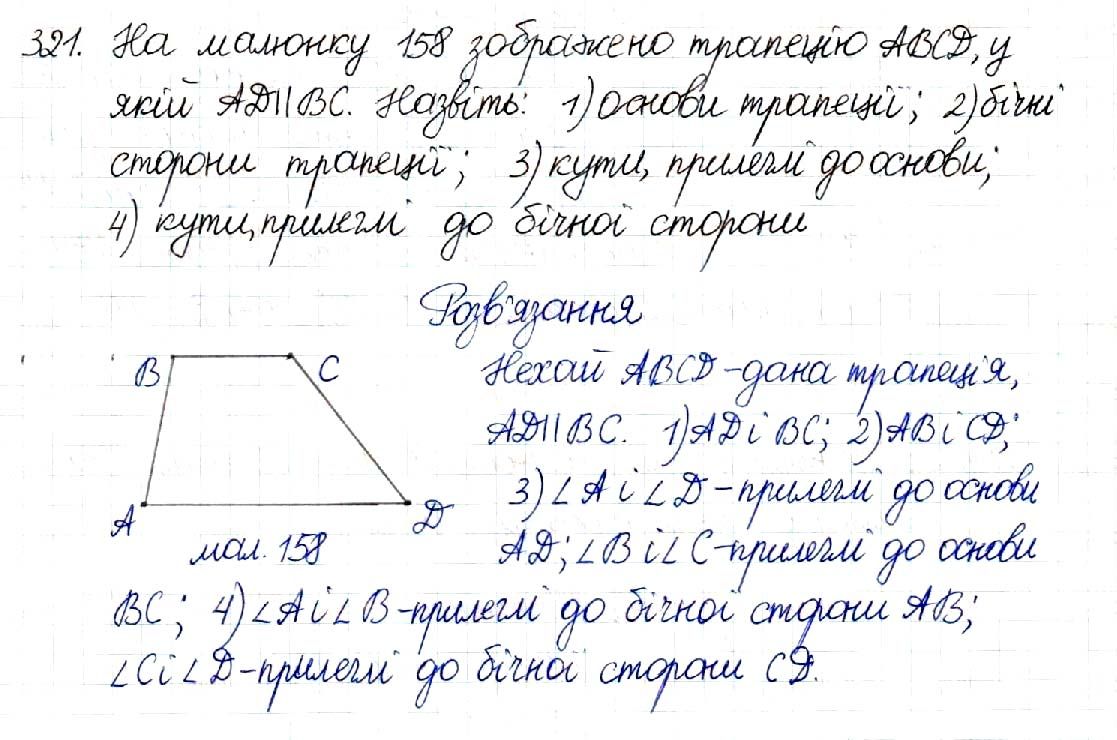 321. На малюнку 158 зображено трапецію ABCD, у
якій AD||BC. Назвіть: 1) основи трапеції; 2) бічні
сторони трапеції; 3) кути, прилеглі до основи;
4) кути, прилеглі до бічної сторони
Розв'язання
B C
A D
мал. 158
Нехай ABCD - дана трапеція,
AD||BC. 1) AD і BC; 2) AB і CD;
3) ∠A і ∠D - прилеглі до основи
AD; ∠B і ∠C - прилеглі до основи
BC; 4) ∠A і ∠B - прилеглі до бічної сторони AB;
∠C і ∠D - прилеглі до бічної сторони CD.